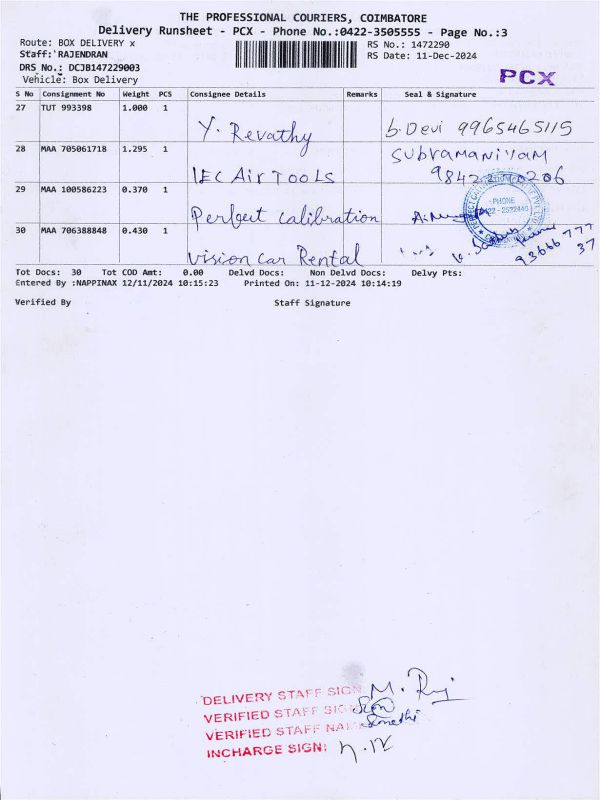 THE PROFESSIONAL COURIERS, COIMBATORE
Delivery Runsheet - PCX - Phone No.:0422-3505555 - Page No.:3
Route: BOX DELIVERY x RS No.: 1472290
Staff: RAJENDRAN RS Date: 11-Dec-2024
DRS No.: DCJB147229003
Vehicle: Box Delivery PCX
S No Consignment No Weight PCS Consignee Details Remarks Seal & Signature
27 TUT 993398 1.000 1
Y. Revathy b.Devi 9965465115
28 MAA 705061718 1.295 1 Subramaniyam
IEC Air TOOLS
29 MAA 100586223 0.370 1
Perfect calibration
PHONE
30 MAA 706388848 0.430 1
vision car Rental 93666 777
37
Tot Docs: 30 Tot COD Amt: 0.00 Delvd Docs: Non Delvd Docs: Delvy Pts:
Entered By :NAPPINAX 12/11/2024 10:15:23 Printed On: 11-12-2024 10:14:19
Verified By Staff Signature
DELIVERY STAFF SIGN M. Raj
VERIFIED STAFF SIGN
VERIFIED STAFF NAME
INCHARGE SIGN: